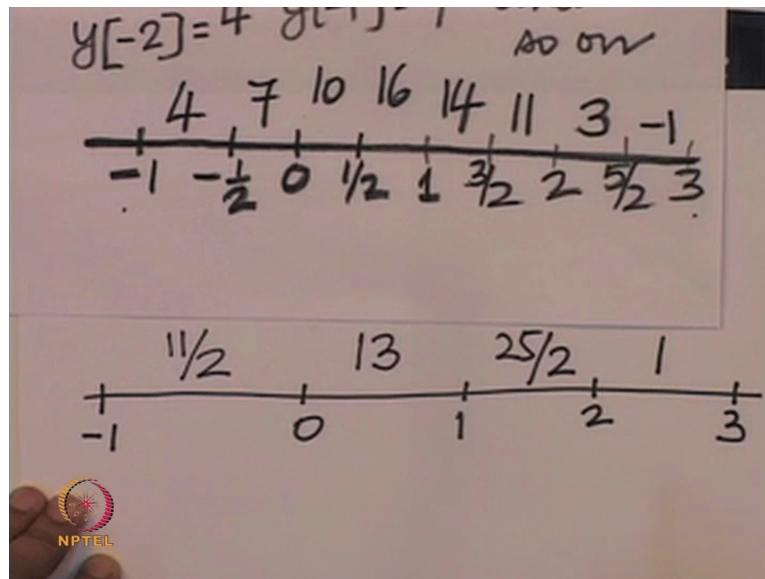 y[-2]=4 y[-1]=7
so on
4 7 10 16 14 11 3 -1
-1 -1/2 0 1/2 1 3/2 2 5/2 3
11/2 13 25/2 1
-1 0 1 2 3
NPTEL